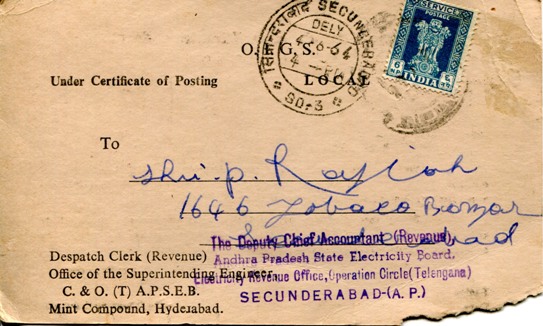 O. I. G. S.
LOCAL
Under Certificate of Posting
सिकन्दराबाद SECUNDERABAD
DELY
4-6-64
SO-3
SERVICE
POSTAGE
6 N.P.
INDIA
To
Shri. P. Rajiah
1646 Tobaco Bazar
Secunderabad
The Deputy Chief Accountant (Revenue)
Andhra Pradesh State Electricity Board,
Electricity Revenue Office, Operation Circle (Telengana)
SECUNDERABAD-(A. P.)
Despatch Clerk (Revenue)
Office of the Superintending Engineer
C. & O. (T) A.P.S.E.B.
Mint Compound, Hyderabad.